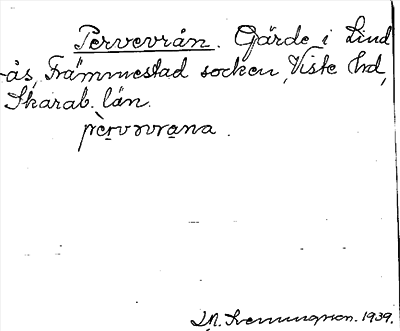 Pervevrån. Gärde i Lind
-ås, Främmestad socken, Viste hd,
Skarab. län.
pèrvəvrana.
1939.